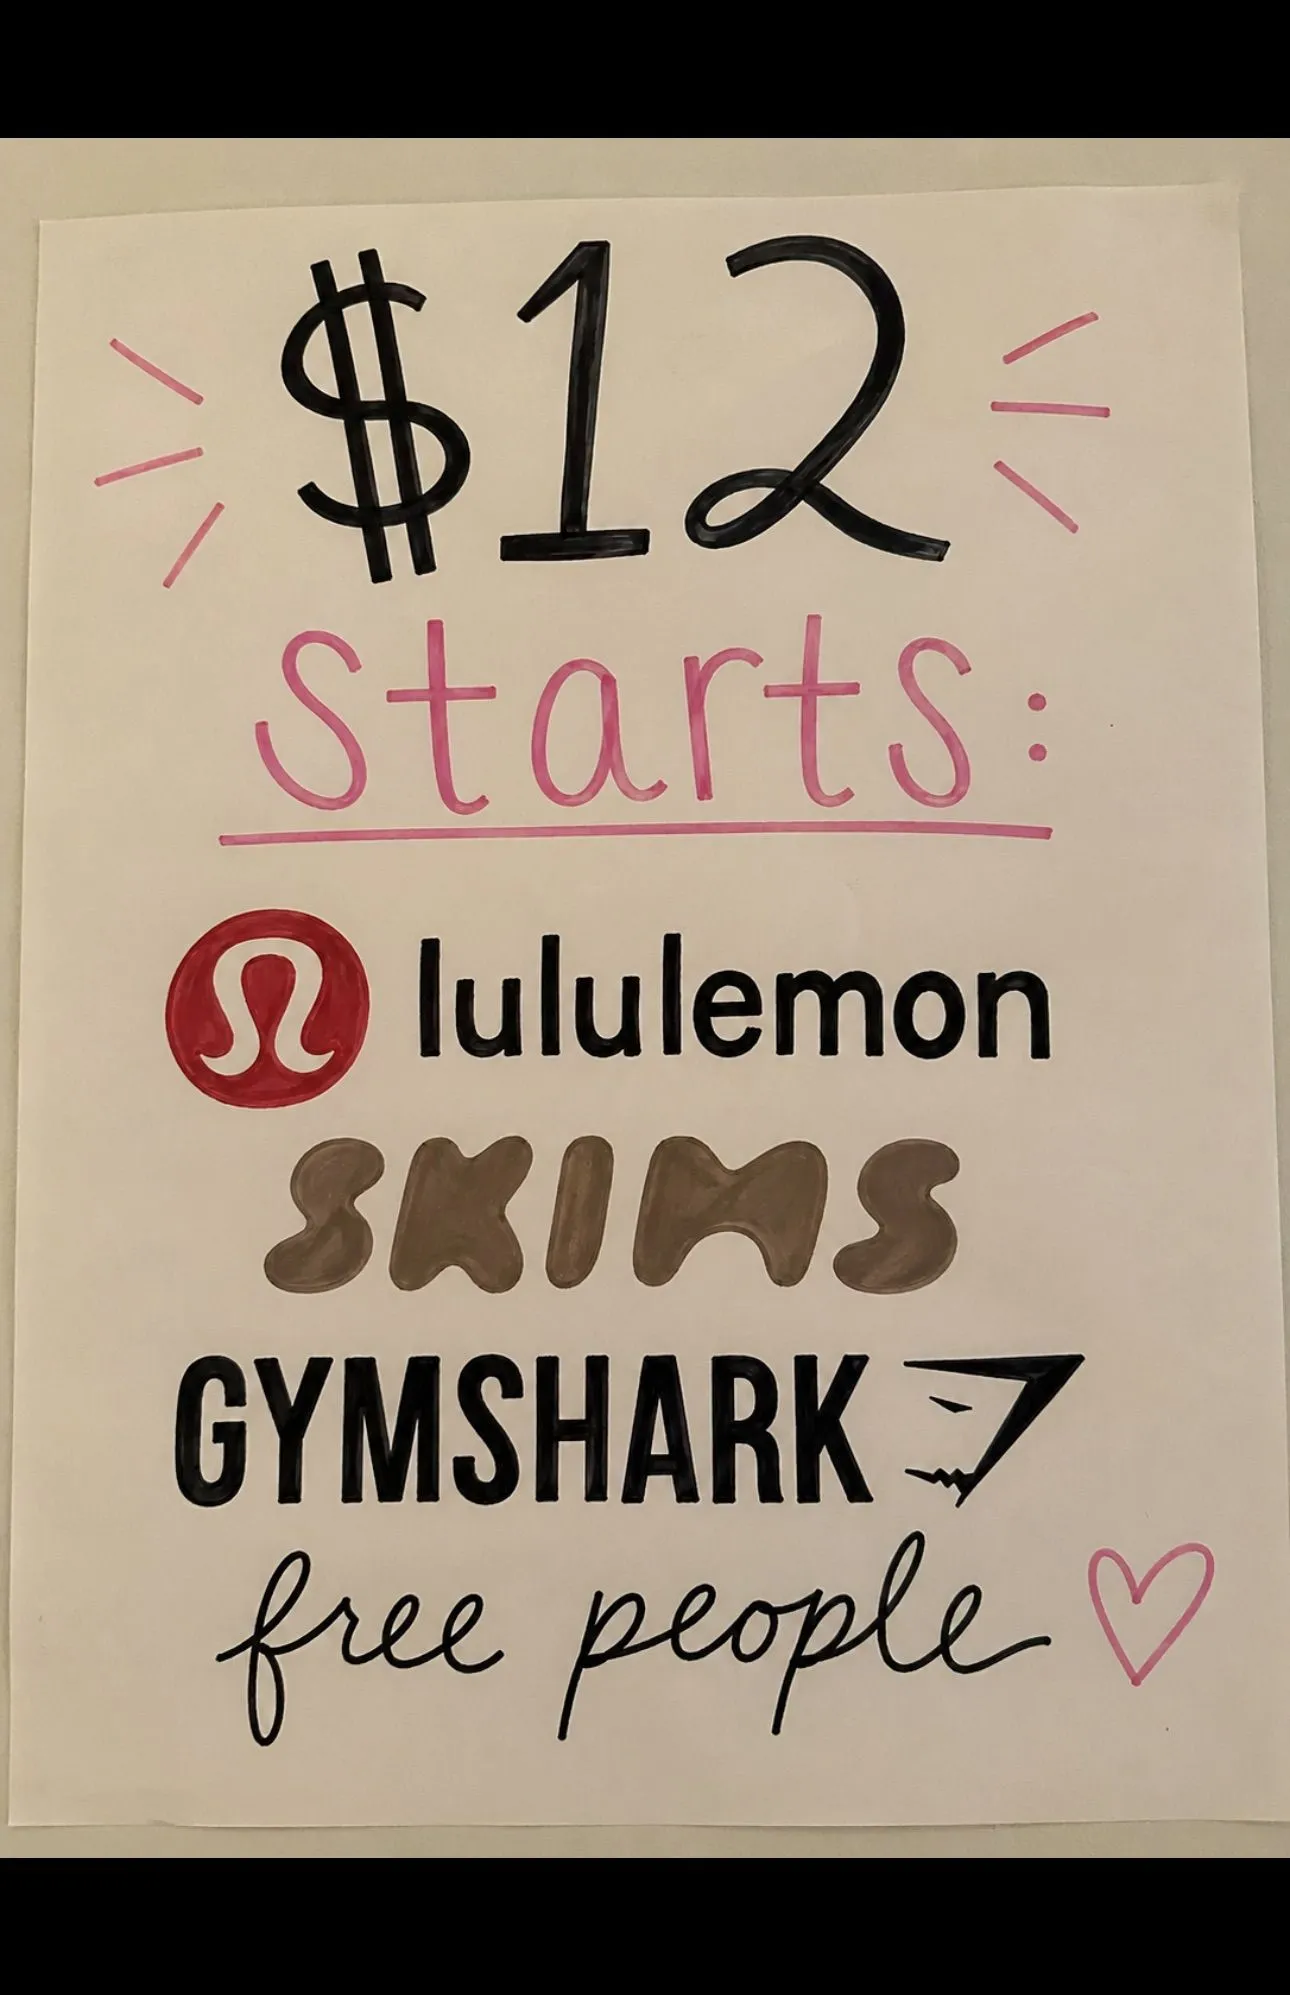 $12
starts:
lululemon
SKIMS
GYMSHARK
free people